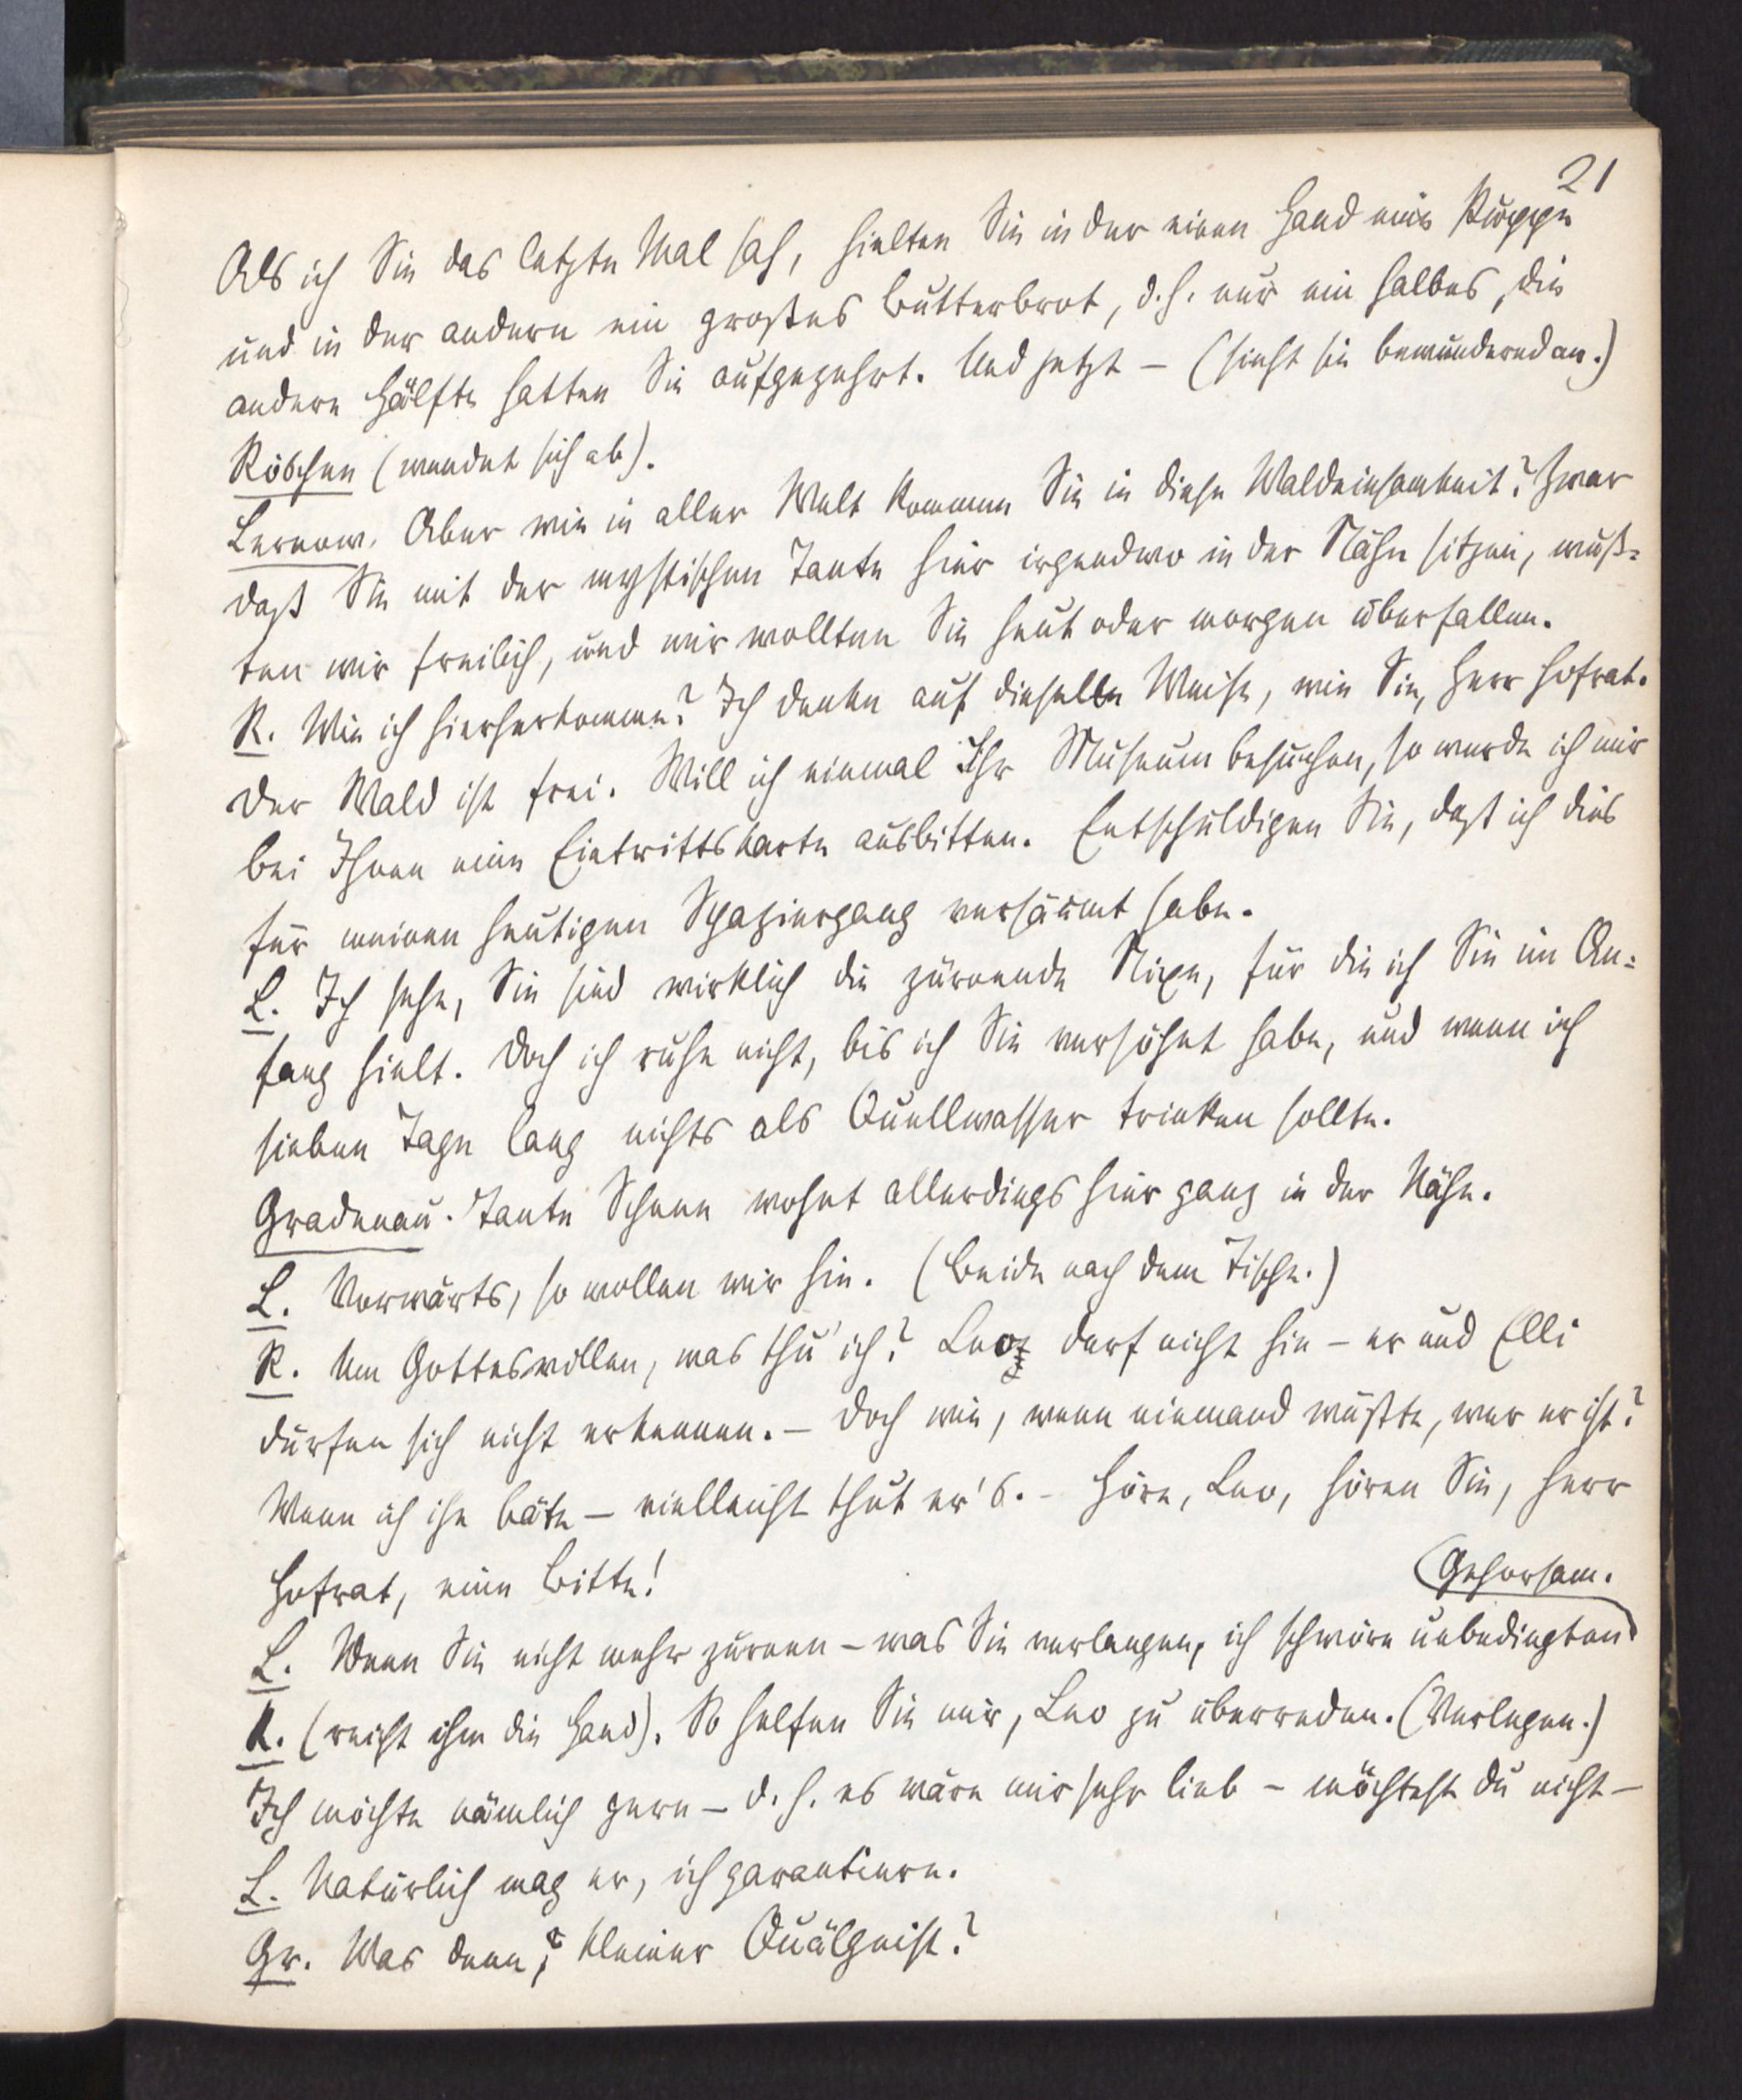 21
Als ich Sie das letzte Mal sah, hielten Sie in der einen Hand eine Puppe
und in der andern ein großes Butterbrot, d. h. nur ein halbes, die
andere Hälfte hatten Sie aufgezehrt. Und jetzt – (sieht sie bewundernd an.)
Röschen (wendet sich ab).
Lernow. Aber wie in aller Welt kommen Sie in diese Waldeinsamkeit? Zwar
daß Sie mit der mystischen Tante hier irgendwo in der Nähe sitzen, wuß=
ten wir freilich, und wir wollten Sie heut oder morgen überfallen.
R. Wie ich hierherkomme? Ich denke auf dieselbe Weise, wie Sie, Herr Hofrat.
Der Wald ist frei. Will ich einmal Ihr Museum besuchen, so werde ich mir
bei Ihnen eine Eintrittskarte ausbitten. Entschuldigen Sie, daß ich dies
für meinen heutigen Spaziergang versäumt habe.
L. Ich sehe, Sie sind wirklich die zürnende Nixe, für die ich Sie im An=
fang hielt. Doch ich ruhe nicht, bis ich Sie versöhnt habe, und wenn ich
sieben Tage lang nichts als Quellwasser trinken sollte.
Gradenau. Tante Schenn wohnt allerdings hier ganz in der Nähe.
L. Vorwärts, so wollen wir hin. (Beide nach dem Tische.)
R. Um Gotteswillen, was thu' ich? Leo darf nicht hin – er und Elli
dürfen sich nicht erkennen. – Doch wie, wenn niemand wüßte, wer er ist?
Wenn ich ihn bäte – vielleicht thut er's. – Höre, Leo, hören Sie, Herr
Hofrat, eine Bitte!
L. Wenn Sie nicht mehr zürnen – was Sie verlangen, ich schwöre unbedingten
Gehorsam.
R. (reicht ihm die Hand). So helfen Sie mir, Leo zu überreden. (Verlegen.)
Ich möchte nämlich gern – d. h. es wäre mir sehr lieb – möchtest du nicht –
L. Natürlich mag er, ich garantiere.
Gr. Was denn, kleiner Quälgeist?